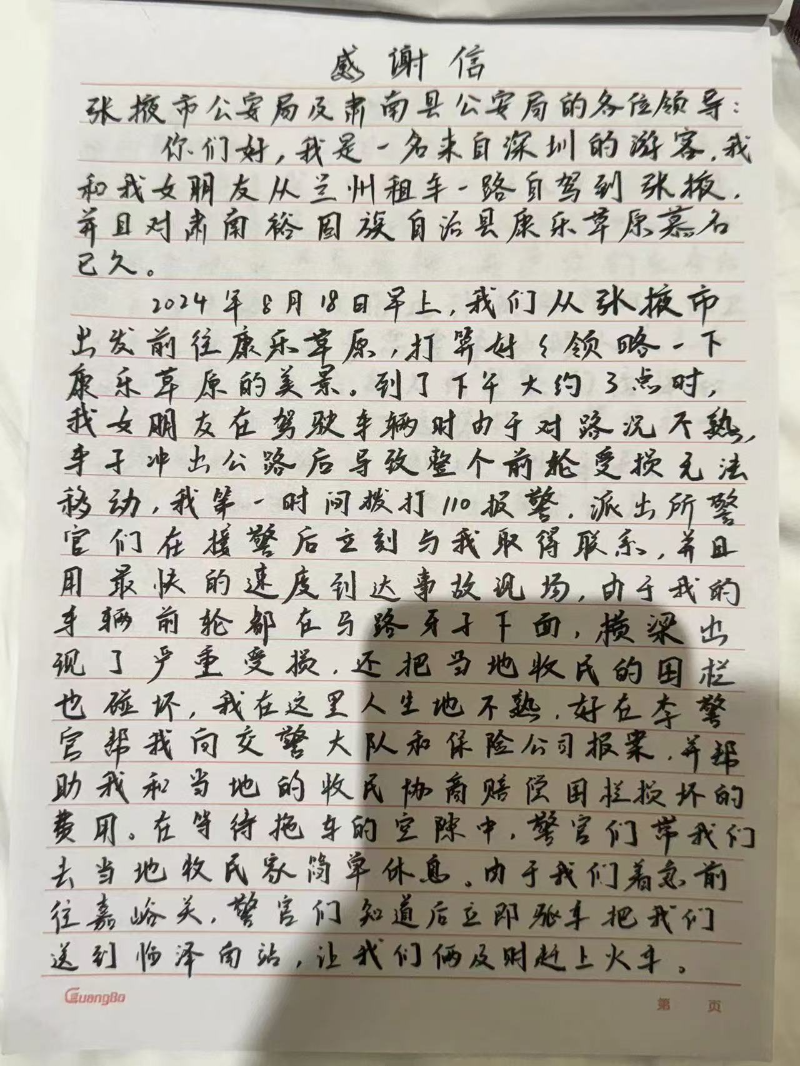 感谢信
张掖市公安局及肃南县公安局的各位领导：
你们好，我是一名来自深圳的游客，我
和我女朋友从兰州租车一路自驾到张掖，
并且对肃南裕固族自治县康乐草原慕名
已久。
2024年8月18日早上，我们从张掖市
出发前往康乐草原，打算好々领略一下
康乐草原的美景。到了下午大约3点时，
我女朋友在驾驶车辆时由于对路况不熟，
车子冲出公路后导致整个前轮受损无法
移动，我第一时间拨打110报警，派出所警
官们在接警后立刻与我取得联系，并且
用最快的速度到达事故现场，由于我的
车辆前轮都在马路牙子下面，横梁出
现了严重受损，还把当地牧民的围栏
也碰坏，我在这里人生地不熟，好在李警
官帮我向交警大队和保险公司报案，并帮
助我和当地的牧民协商赔偿围栏损坏的
费用。在等待拖车的空隙中，警官们带我们
去当地牧民家简单休息。由于我们着急前
往嘉峪关，警官们知道后立即驱车把我们
送到临泽南站，让我们俩及时赶上火车。
GuangBo
第 页